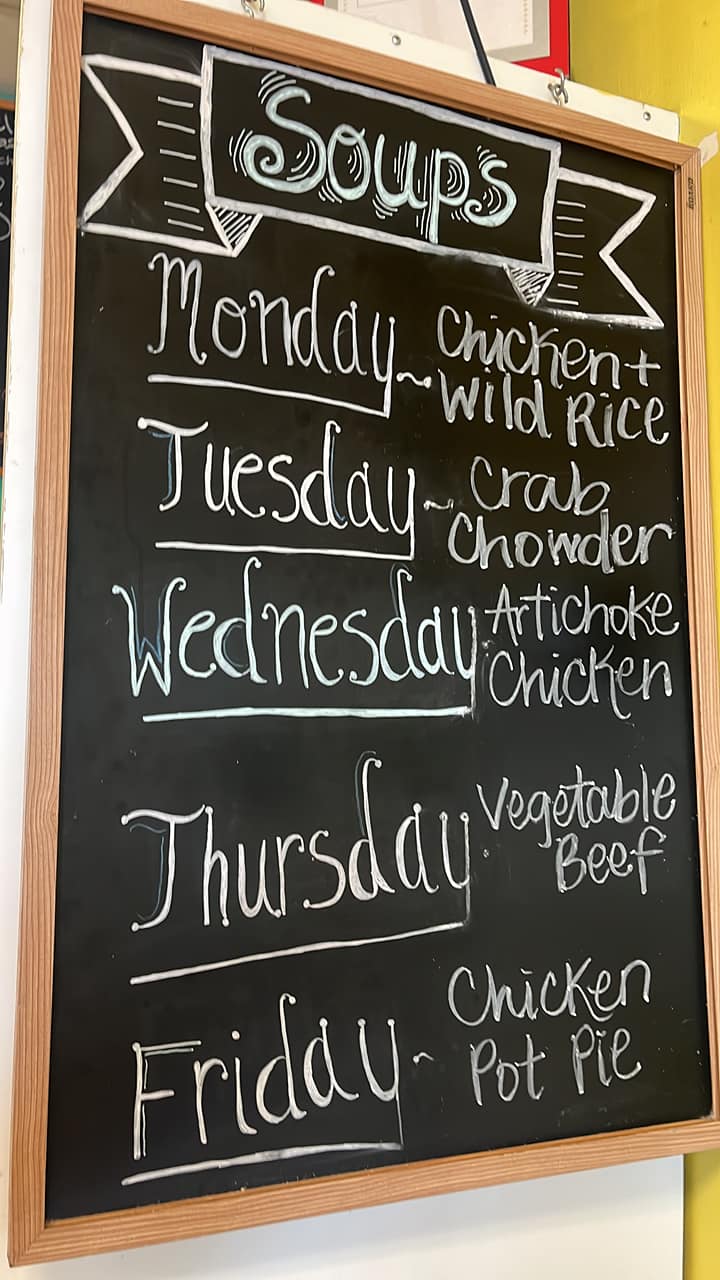 Soups
Monday~ Chicken +
Wild Rice
Tuesday~ Crab
Chowder
Wednesday Artichoke
Chicken
Thursday Vegetable
Beef
Friday~ Chicken
Pot Pie